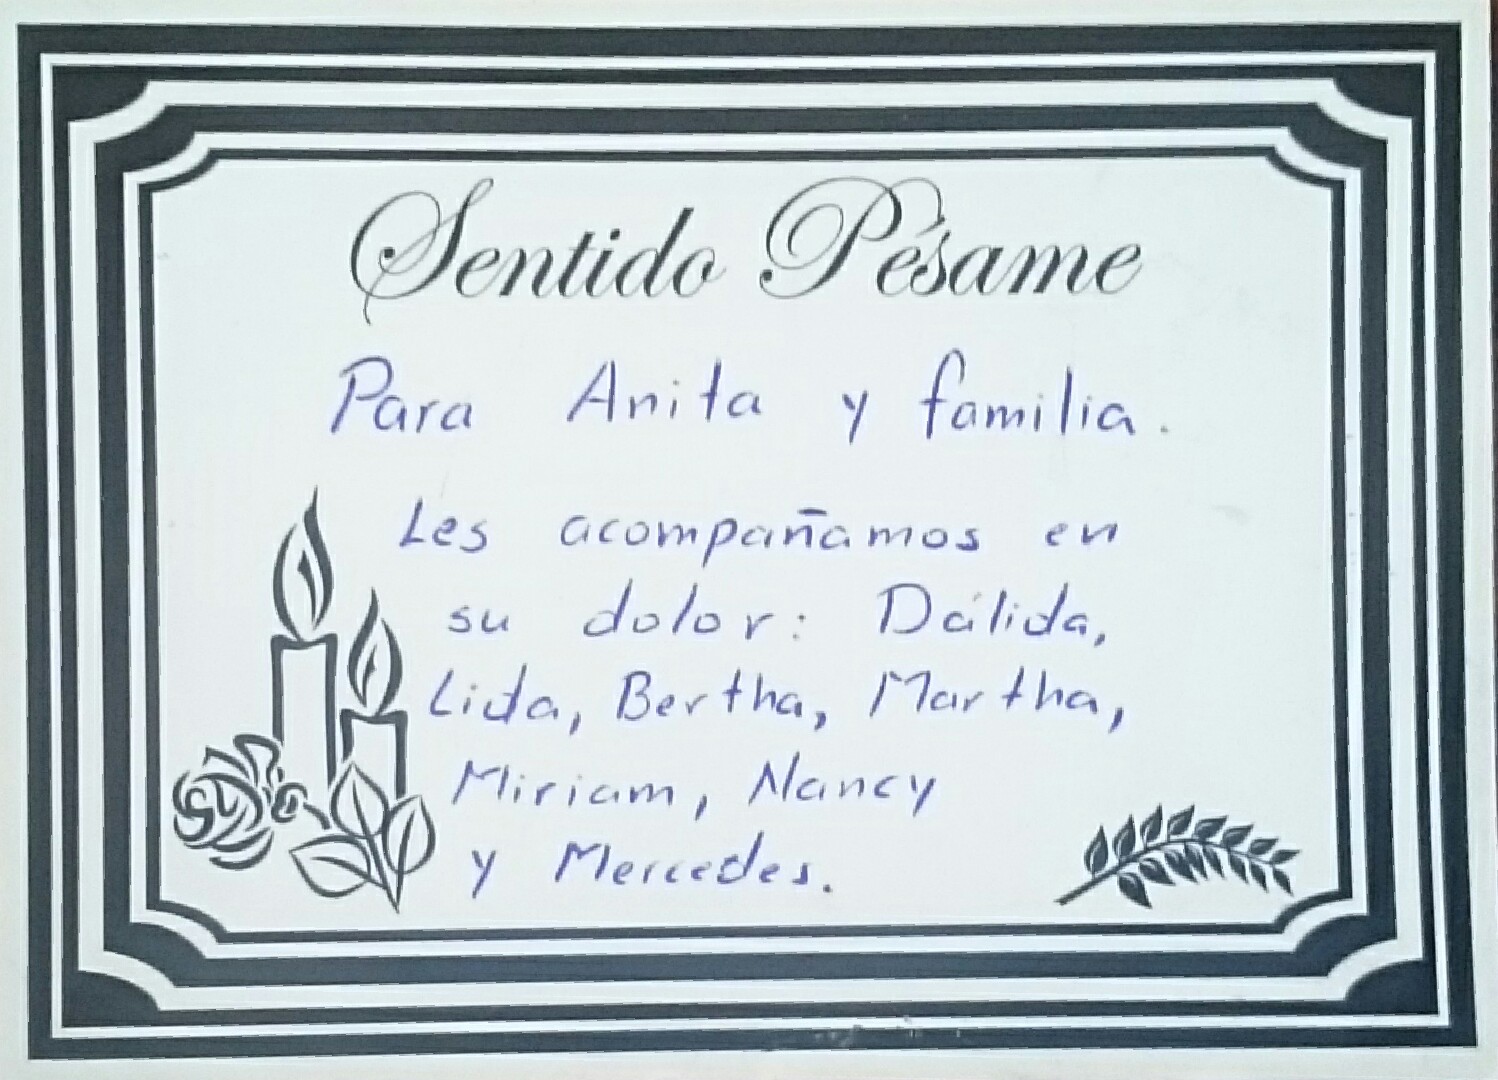 Sentido Pésame
Para Anita y familia.
Les acompañamos en
su dolor: Dálida,
Lida, Bertha, Martha,
Miriam, Nancy
y Mercedes.